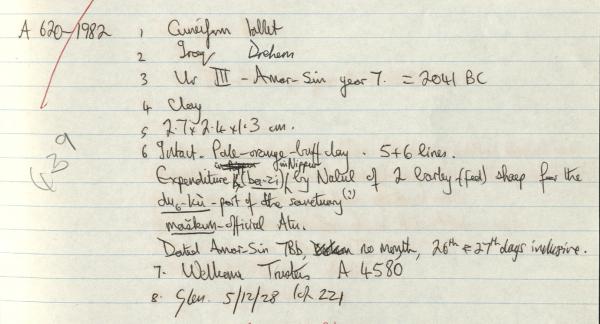 A 620-1982 1 Cuneiform tablet
2 Iraq Drehem
3 Ur III - Amar-Sin year 7. = 2041 BC
4 Clay
5 2.7 x 2.4 x 1.3 cm.
6 Intact. Pale-orange-buff clay. 5+6 lines.
in Nippur
Expenditure (ba-zi) by Nalul of 2 barley-(fed) sheep for the
du6-kù - part of the sanctuary (?)
maškum-official Atu.
Dated Amar-Sin 7Bb, no month, 26th & 27th days inclusive.
7. Wellcome Trustees A 4580
8. Glen. 5/12/28 lot 221
639